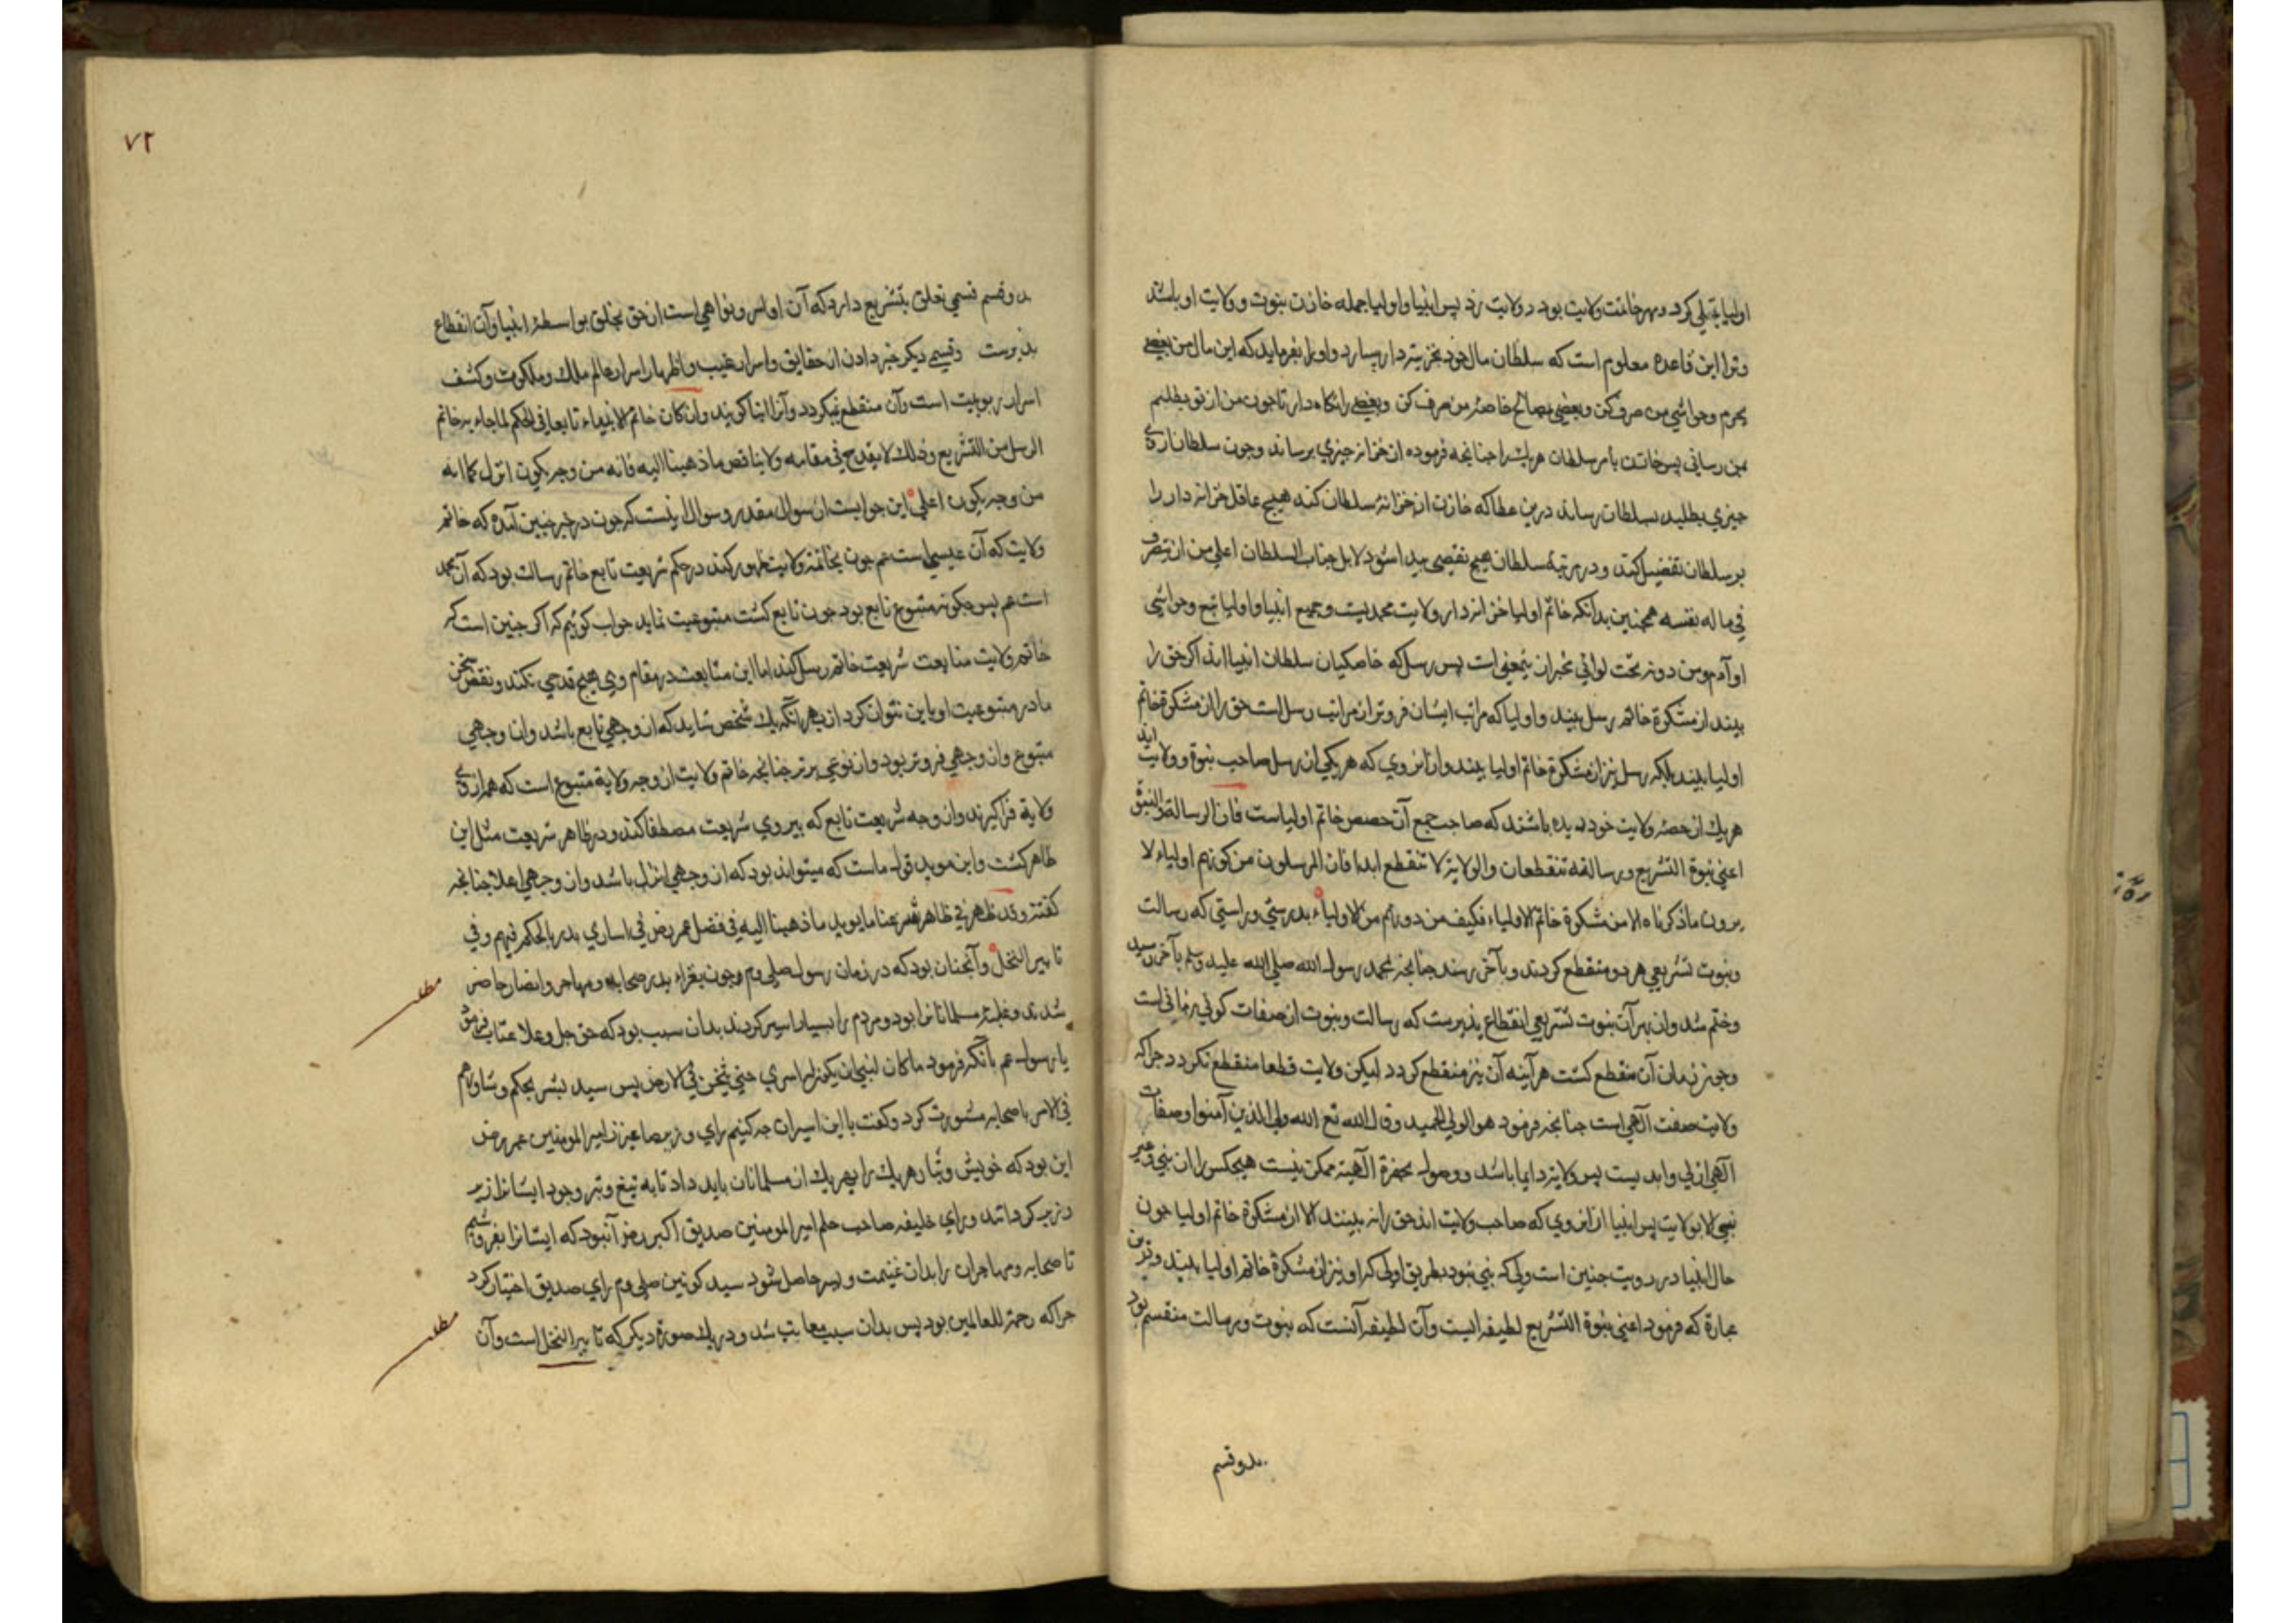 اولیا تجلی کرد و مهر خاتمت ولایت بود در ولایت زد پس انبیا و اولیا جمله خازن نبوت و ولایت او باشند
و ترا این قاعده معلوم است که سلطان مال خود بخزینه دار بسپارد و او را بفرماید که این مال من بعضی
بحرم و حواشی من صرف کن و بعضی بمصالح خاصهٔ من صرف کن و بعضی را نگاه دار تا چون من از تو بطلبم
بمن رسانی پس خازن بامر سلطان هر یک را جنانجه فرموده از خزانه جیزی برساند و جون سلطان از وی
جیزی بطلبد بسلطان رساند درین عطا که خازن از خزانهٔ سلطان کند هیچ عاقل خزانه دار را
بر سلطان تفضیل کند و در مرتبهٔ سلطان هیچ نقیصی پیدا شود لا بل جناب السلطان اعلی من ان یتصرف
فی ماله بنفسه همجنین بدانکه خاتم اولیا خزانه دار ولایت محمدیست و جمیع انبیا و اولیا تبع و حواشی
او آدم و من دونه تحت لوائی مخبر از ینمعنی است پس رسل که خاصکیان سلطان انبیا اند اکر حق را
بینند از مشکوة خاتم رسل بینند و اولیا که مراتب ایشان فروتر از مراتب رسل است حق را از مشکوة خاتم
اولیا بینند بلکه رسل نیز از مشکوة خاتم اولیا بینند و از انروی که هر یکی از رسل صاحب نبوة و ولایت اند
هر یک از حصهٔ ولایت خود دیده باشند که صاحب جمع آن حصص خاتم اولیاست فان الرسالة و النبوة
اعنی نبوة التشریع و رسالته تنقطعان و الولایة لا تنقطع ابدا فان المرسلون من کونهم اولیاء لا
یرون ما ذکرناه الا من مشکوة خاتم الاولیاء فکیف من دونهم من الاولیاء بدرستی و راستی که رسالت
و نبوت تشریعی هر دو منقطع کردند و بآخر رسند جنانجه بمحمد رسول الله صلی الله علیه و سلم بآخر رسید
و ختم شد و از بهر آن نبوت تشریعی انقطاع پذیرست که رسالت و نبوت از صفات کونی زمانی است
و جون زمان آن منقطع کشت هر آینه آن نیز منقطع کردد لیکن ولایت قطعا منقطع نکردد جرا که
ولایت صفت آلهی است جنانجه فرمود هو الولی الحمید و قال الله تع الله ولی الذین آمنوا و صفات
آلهی ازلی و ابدیست پس ولایة دایما باشد و وصول بحضرة آلهیة ممکن نیست هیجکس را از نبی و غیر
نبی الا بولایت پس انبیا از انروی که صاحب ولایت اند حق را نه بینند الا از مشکوة خاتم اولیا جون
حال انبیا در رویت جنین است ولی که نبی نبود بطریق اولی که او نیز از مشکوة خاتم اولیا بیند و درین
عبارة که فرمود اعنی نبوة التشریع لطیفه ایست و آن لطیفه آنست که نبوت و رسالت منقسم بود
بدو قسم
۷۲
بدو قسم قسمی تعلق بتشریع دارد که آن اوامر و نواهی است از حق بخلق بواسطهٔ انبیا و آن انقطاع
پذیرست و قسمی دیکر خبر دادن از حقایق و اسرار غیب و اظهار اسرار عالم ملک و ملکوت و کشف
اسرار ربوبیت است و آن منقطع نمیکردد و آنرا انبا کویند و ان کان خاتم الانبیاء تابعا فی الحکم لما جاء به خاتم
الرسل من التشریع و ذلک لا یقدح فی مقامه و لا یناقض ما ذهبنا الیه فانه من وجه یکون انزل کما انه
من وجه یکون اعلی این جوابست از سوال مقدر و سوال اینست که جون در خبر جنین آمده که خاتم
ولایت که آن عیسی است عم جون بخاتمهٔ ولایت ظهور کند در حکم شریعت تابع خاتم رسالت بود که آن محمد
است عم پس جکونه متبوع تابع بود جون تابع کشت متبوعیت نماید جواب کوئیم که اکر جنین است که
خاتم ولایت متابعت شریعت خاتم رسل کند اما این متابعت در مقام وی هیچ قدحی نکند و نقض سخن
ما در متبوعیت او باین نتوان کرد از بهر آنکه یک شخص شاید که از وجهی تابع باشد و از وجهی
متبوع و از وجهی فروتر بود و از نوعی برتر جنانجه خاتم ولایت از وجه ولایة متبوع است که همه از وی
ولایة فرا کیرند و از وجه شریعت تابع که پیروی شریعت مصطفا کند و در ظاهر شریعت مثل این
ظاهر کشت و این موید قول ماست که میتواند بود که از وجهی انزل باشد و از وجهی اعلا جنانجه
کفته و قد ظهر فی ظاهر شرعنا ما یوید ما ذهبنا الیه فی فضل عمر رض فی اساری بدر بالحکم فیهم و فی
تابیر النخل و آنجنان بود که در زمان رسول صلی و م و جون بغزاء بدر صحابه و مهاجر و انصار حاضر
مطلب
شدند و غلبه مر مسلمانانرا بود و مردم را بسیار اسیر کردند بدان سبب بود که حق جل و علا عتاب فرمود
با رسول عم بآنکه فرمود ما کان لنبی ان یکون له اسری حتی یثخن فی الارض پس سید بشر بحکم و شاورهم
فی الامر با صحابه مشورت کرد و کفت با این اسیران جه کنیم رای وزیر صاعز ز امیر المومنین عمر رض
این بود که خویش و تبار هر یک را بهر یک از مسلمانان باید داد تا به تیغ و تبر وجود ایشانرا زیر
و زبر کردانند و رای خلیفهٔ صاحب حلم امیر المومنین صدیق اکبر رض آنبود که ایشانرا بفروشیم
تا صحابه و مهاجران را بدان غنیمت و یسر حاصل شود سید کونین صلی و م رای صدیق اختیار کرد
جرا که رحمة للعالمین بود پس بدان سبب معاتب شد و در یک صورة دیکر که تابیر النخل است و آن
مطلب